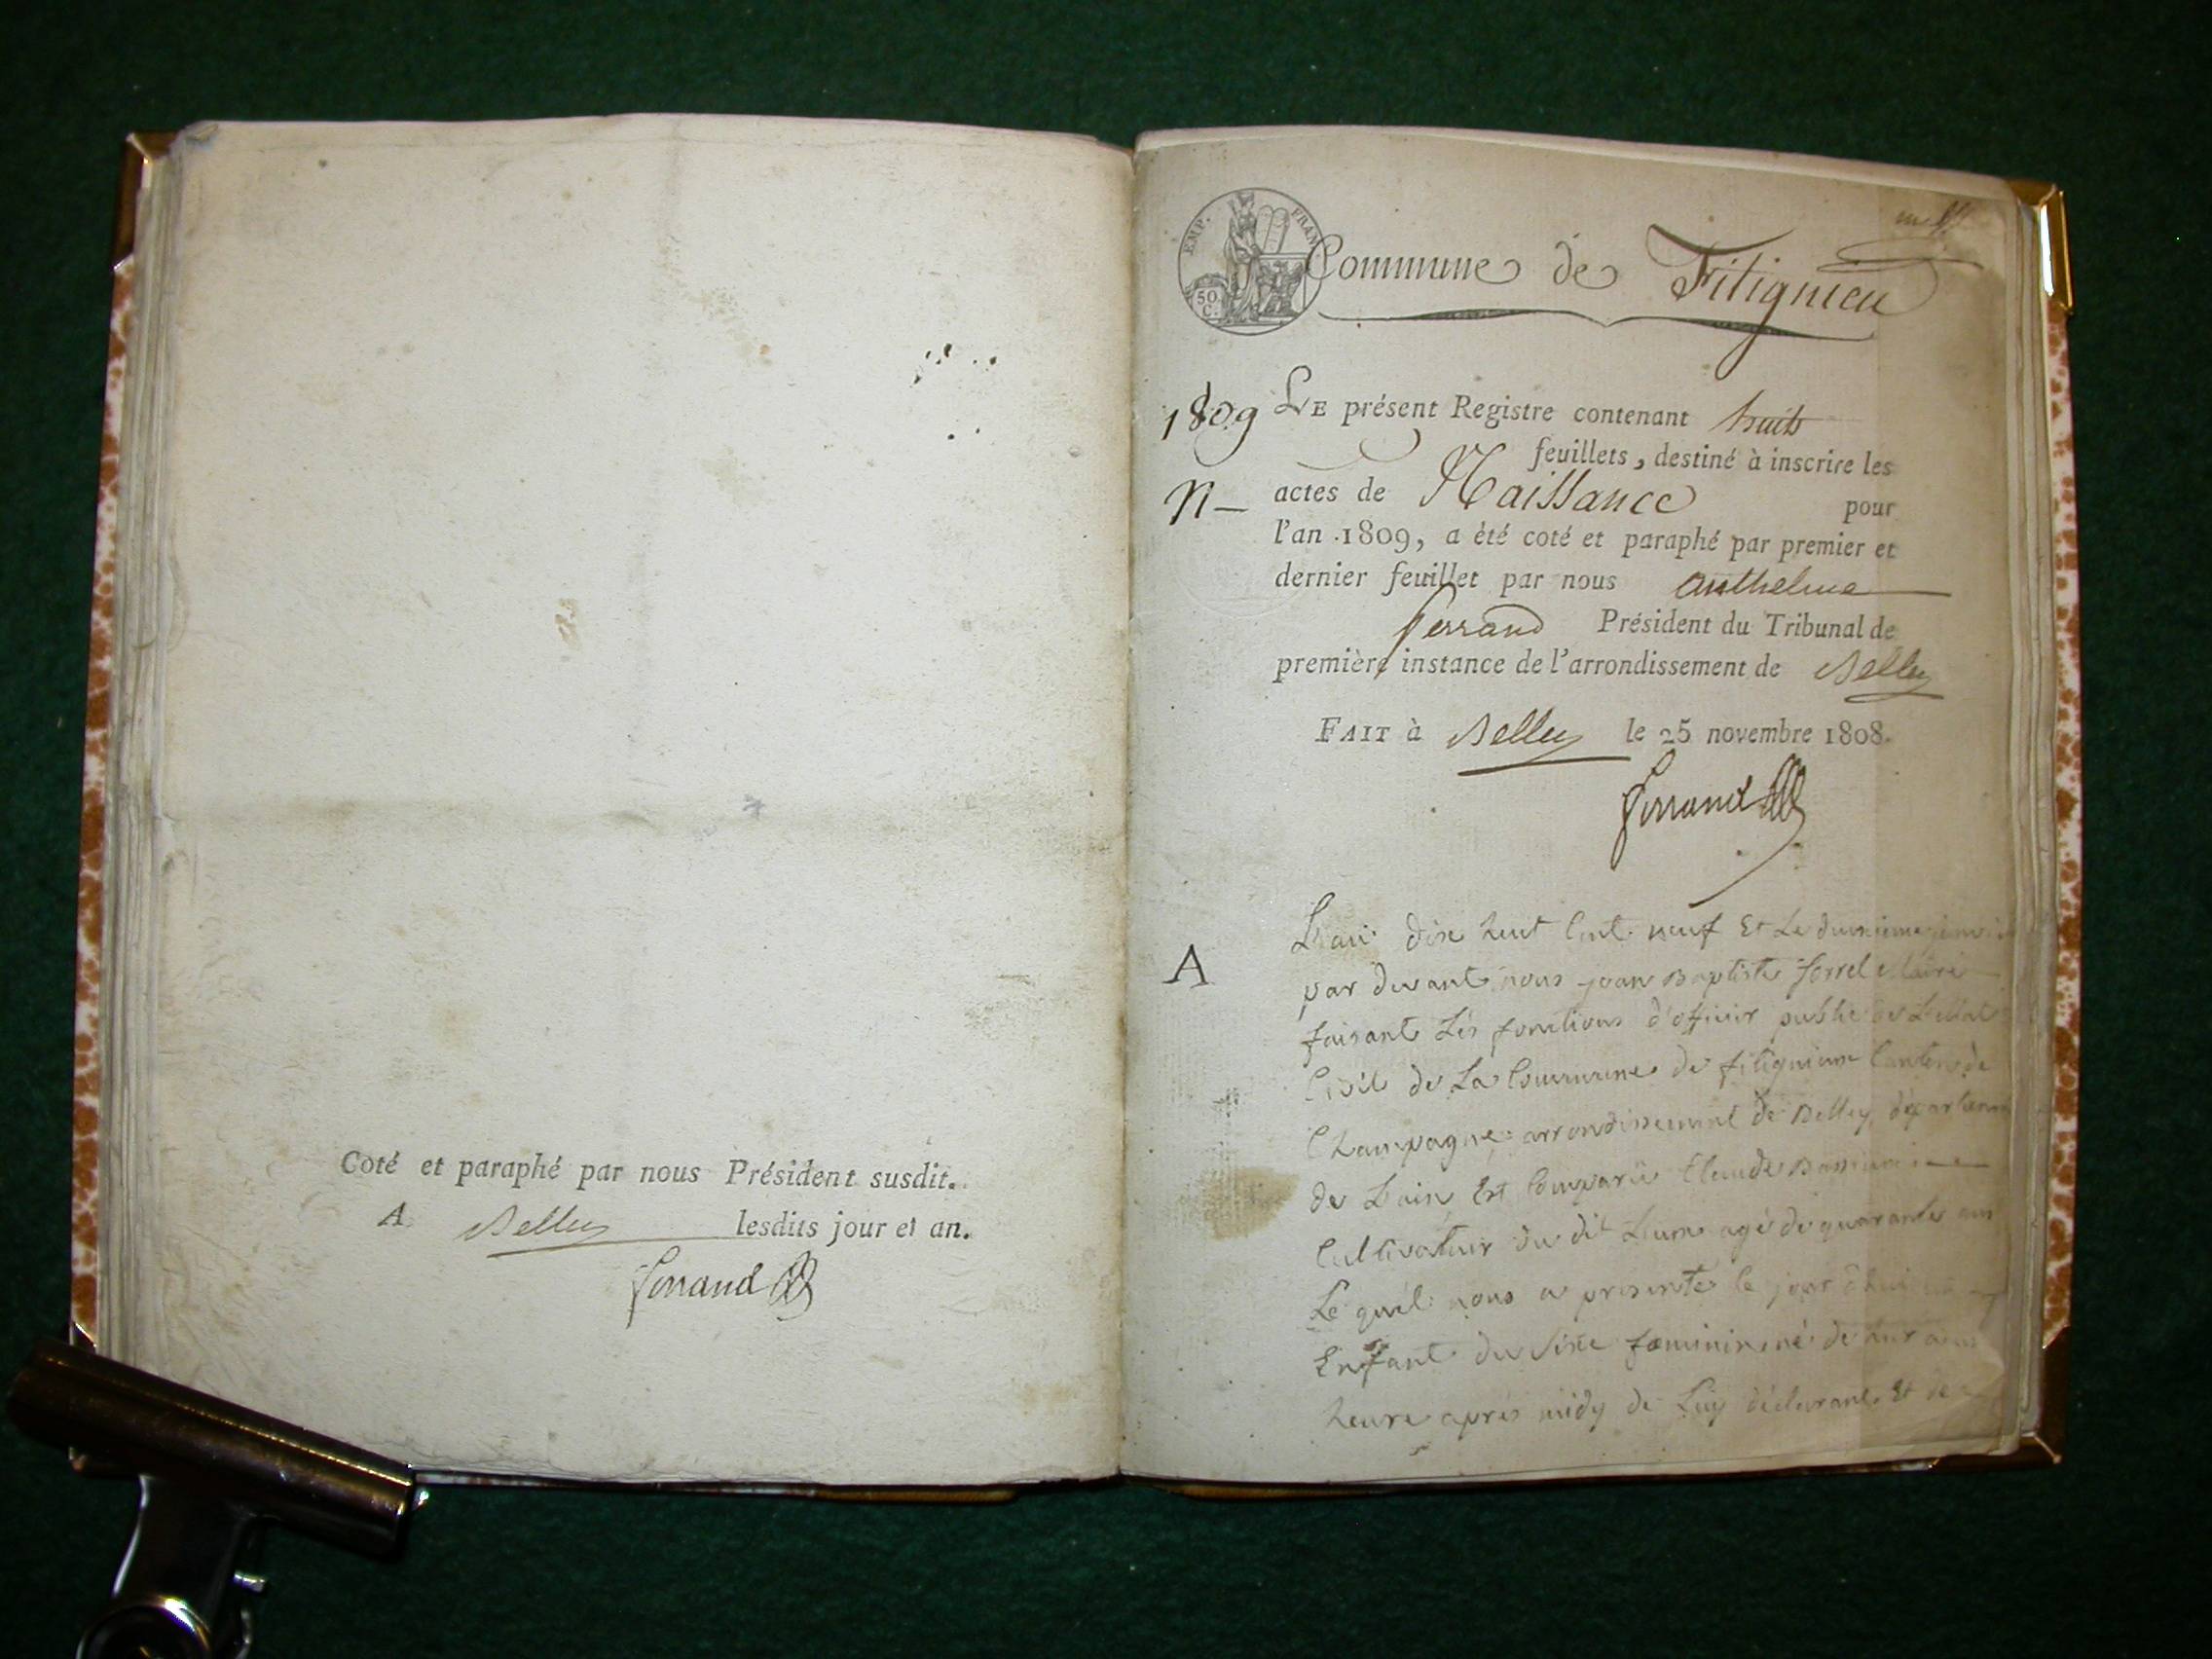 Coté et paraphé par nous Président susdit.
A Belley lesdits jour et an.
ferrand
EMP. FRAN
50
C.
Commune de Fitignieu
1809
LE présent Registre contenant huit
feuillets, destiné à inscrire les
N
actes de Naissance pour
l'an 1809, a été coté et paraphé par premier et
dernier feuillet par nous anthelme
ferrand Président du Tribunal de
première instance de l'arrondissement de Belley
FAIT à Belley le 25 novembre 1808.
ferrand
A
L'an dix huit Cent neuf Et Le
par devant nous jean Baptiste
faisant Les fonctions d'officier public de
Civil de La Commune de fitignieu Canton de
Champagne arrondissement de Belley, départem
de Lain, Est Comparu Claude
Cultivateur du dit Lieu agé de quarante ans
Le quel nous a presenté le jour dhui
Enfant du Sixe foeminin né de
heure apres midy de Luy déclarant Et de